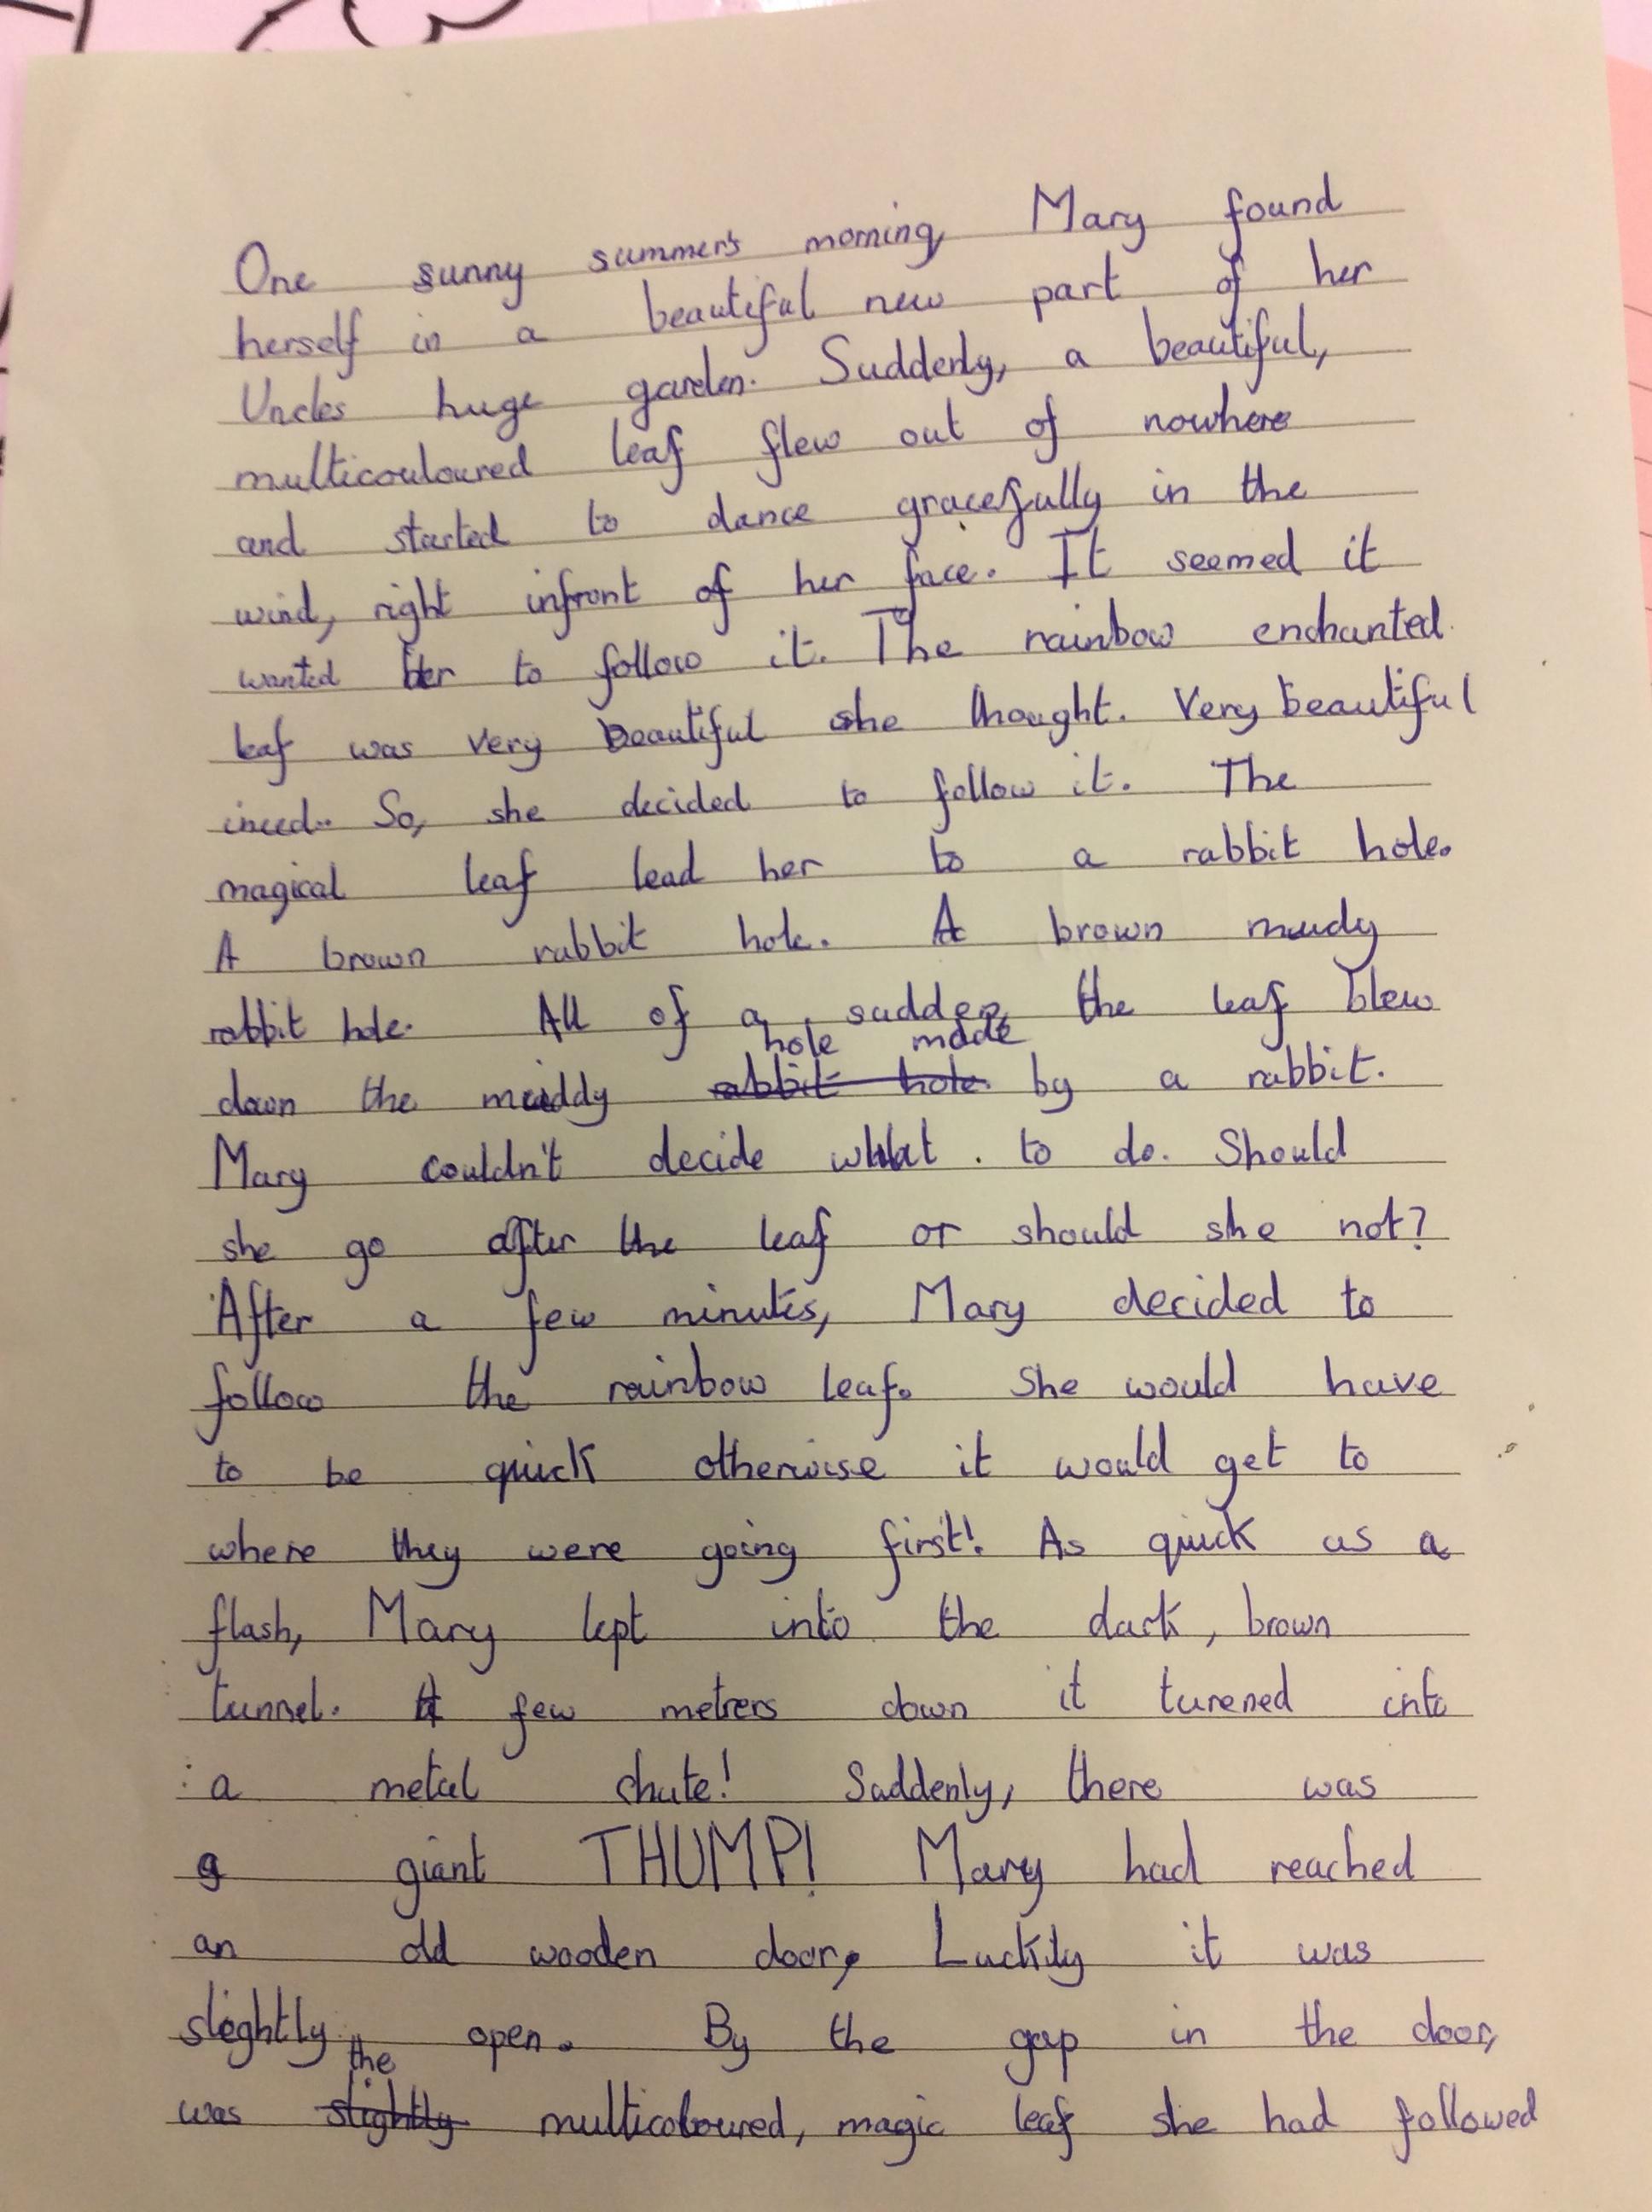 One sunny summer's morning, Mary found
herself in a beautiful new part of her
Uncles huge garden. Suddenly, a beautiful,
multicouloured leaf flew out of nowhere
and started to dance gracefully in the
wind, right infront of her face. It seemed it
wanted her to follow it. The rainbow enchanted
leaf was very beautiful she thought. Very beautiful
ineed.. So, she decided to follow it. The
magical leaf lead her to a rabbit hole.
A brown rabbit hole. A brown mudy
rabbit hole. All of a sudden, the leaf blew
hole made
down the muddy rabbit hole by a rabbit.
Mary couldn't decide what to do. Should
she go after the leaf or should she not?
After a few minutes, Mary decided to
follow the rainbow leaf. She would have
to be quick otherwise it would get to
where they were going first! As quick as a
flash, Mary lept into the dark, brown
tunnel. A few metrers down it turened into
a metal chute! Suddenly, there was
a giant THUMP! Mary had reached
an old wooden door, Luckily it was
slightly open. By the gap in the door,
the
was slightly multicoloured, magic leaf she had followed